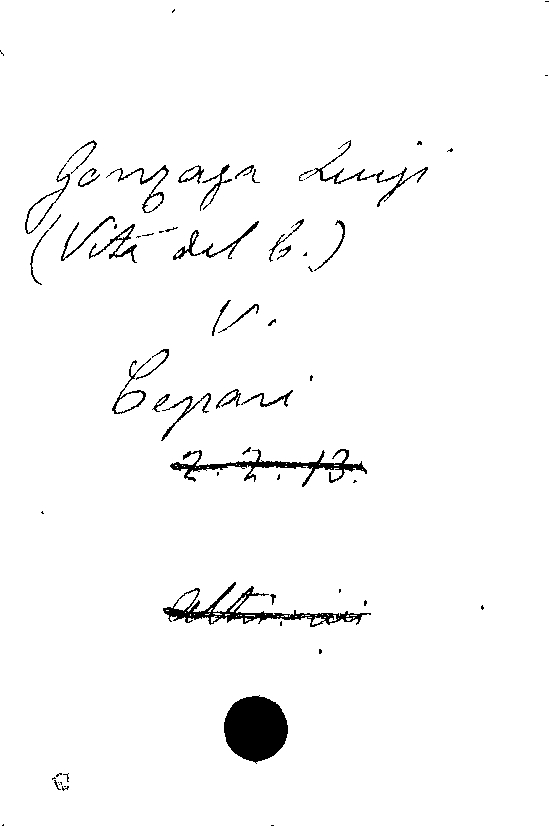 Gonzaga Luigi
(Vita del B.)
V.
Cepari
2. 2. 13.
Altri ivi